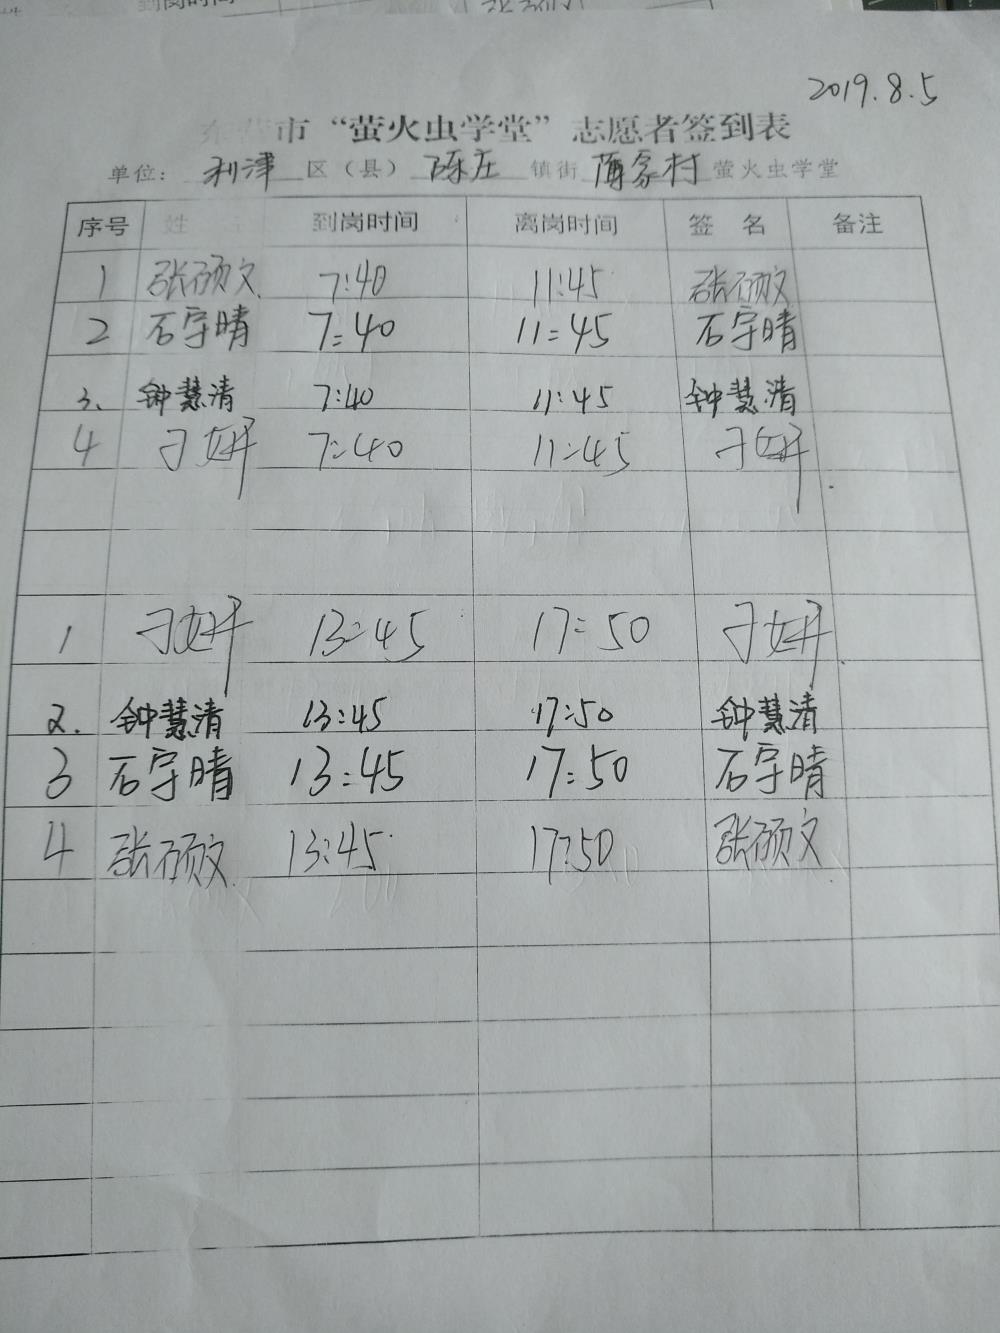 2019.8.5
东营市“萤火虫学堂”志愿者签到表
单位：利津区（县）陈庄镇街薄家村萤火虫学堂
序号 姓 名 到岗时间 离岗时间 签 名 备注
1 张硕文 7:40 11:45 张硕文
2 石宇晴 7:40 11:45 石宇晴
3. 钟慧清 7:40 11:45 钟慧清
4 刁妍 7:40 11:45 刁妍
1 刁妍 13:45 17:50 刁妍
2. 钟慧清 13:45 17:50 钟慧清
3 石宇晴 13:45 17:50 石宇晴
4 张硕文 13:45 17:50 张硕文